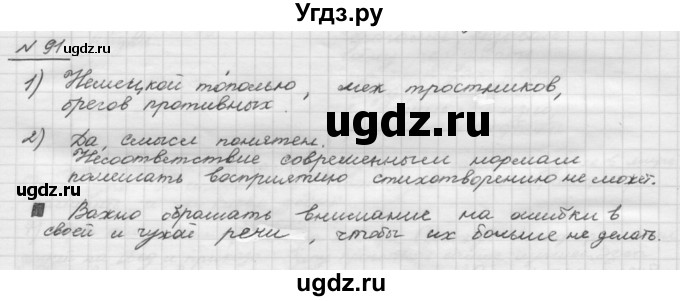 Угдз.ру
N 91
1) Немецкой тополью, меж тростников,
брегов противных.
ugdz.ru
2) Да, смысл понятен.
Несоответствие современным нормам
помешать восприятию стихотворению не может.
ugdz.ru
ugdz.ru
Важно обращать внимание на ошибки в
своей и чужой речи, чтобы их больше не делать.
ugdz.ru
ugdz.ru